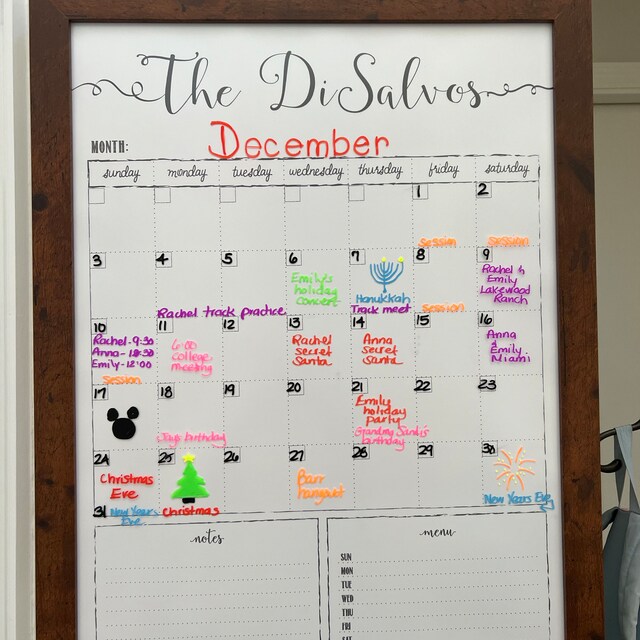 The DiSalvos
MONTH: December
sunday monday tuesday wednesday thursday friday saturday
1 2
session session
3 4 5 6 7 8 9
Emily's
holiday
concert
Rachel &
Emily
Lakewood
Ranch
Hanukkah
Rachel track practice
Track meet
session
10 11 12 13 14 15 16
Rachel - 9:30
Anna -
Emily - 12:00
session
6:00
college
meeting
Rachel
secret
Santa
Anna
secret
Santa
Anna
&
Emily
Miami
17 18 19 20 21 22 23
Jays birthday
Emily
holiday
party
Grandma Sandy's
birthday
24 25 26 27 28 29 30
Christmas
Eve
Christmas
Barr
hangout
New Years Eve
31 New Years
Eve
notes
menu
SUN
MON
TUE
WED
THU
FRI
SAT